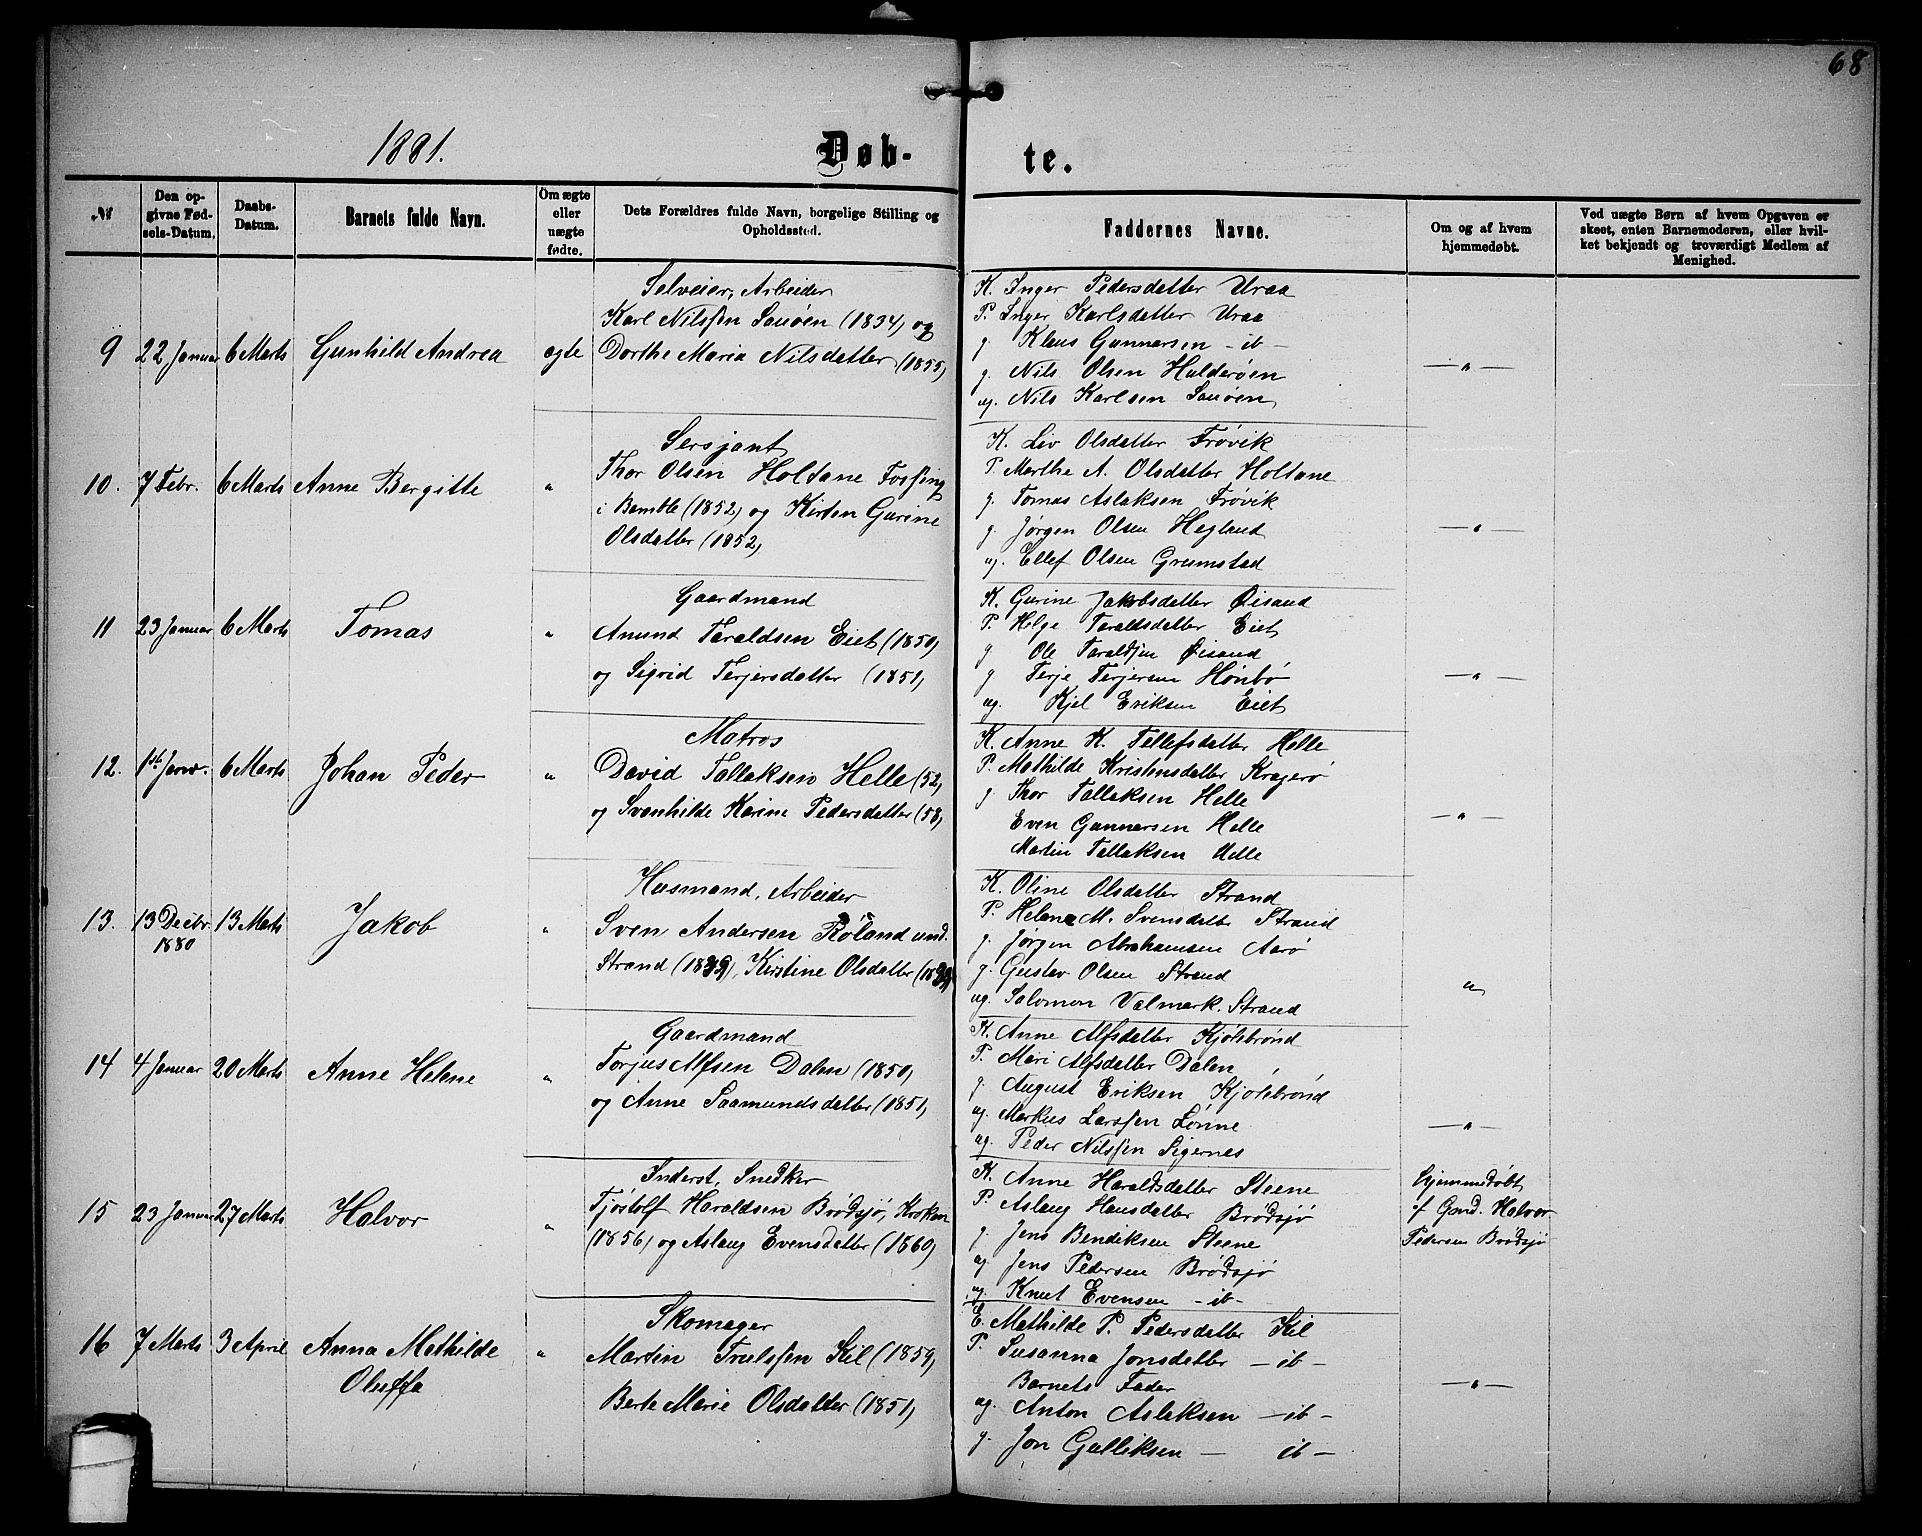 68
1881.
Døb-
te.
№
Den op-
givne Fød-
sels-Datum.
Daabs-
Datum.
Barnets fulde Navn.
Om ægte
eller
uægte
fødte.
Dets Forældres fulde Navn, borgelige Stilling og
Opholdssted.
Faddernes Navne.
Om og af hvem
hjemmedøbt.
Ved uægte Børn af hvem Opgaven er
skeet, enten Barnemoderen, eller hvil-
ket bekjendt og troværdigt Medlem af
Menighed.
9 22 Januar 6 Marts Gunhild Andrea ægte
Selveier, Arbeider
Karl Nilssen Sauøen (1834) og
Dorthe Maria Nilsdatter (1855)
K. Inger Pedersdatter Uraa
P. Inger Karlsdatter Uraa
g. Klaus Gunnarsen - ib -
g. Nils Olsen Halderøen
ug. Nils Karlsen Sauøen
— " —
10. 7 Febr. 6 Marts Anne Bergitte "
Sersjant
Thor Olsen Holtane Fossing
i Bamble (1852) og Kirsten Gurine
Olsdatter (1852)
K. Liv Olsdatter Frøvik
P. Marthe A. Olsdatter Holtane
g. Tomas Aslaksen Frøvik
g. Jørgen Olsen Hegland
ug. Ellef Olsen Grumstad
— " —
11 23 Januar 6 Marts Tomas "
Gaardmand
Anund Taraldsen Eiet (1850)
og Sigrid Terjersdatter (1851)
K. Gurine Jakobsdatter Øisand
P. Helge Taraldsdatter Eiet
g. Ole Taraldsen Øisand
g. Terje Terjersen Hønbø
ug. Kjel Eriksen Eiet
— " —
12. 1st Janu. 6 Marts Johan Peder "
Matros
David Tallaksen Helle (52)
og Svanhilde Karine Pedersdatter (58)
K. Anne K. Tellefsdatter Helle
P. Mathilde Kristensdatter Kragerø
g Thor Tallaksen Helle
Even Gunnarsen Helle
Martin Tallaksen Helle
— " —
13. 13 Decbr. 1880 13 Marts Jakob "
Husmand, Arbeider
Sven Andersen Røland und.
Strand (1839), Kirstine Olsdatter
K. Oline Olsdatter Strand
P. Helene M. Svensdatter Strand
g. Jørgen Abrahamsen Aarø
g. Gustav Olsen Strand
ug. Salomon Valmark. Strand
"
14 4 Januar 20 Marts Anne Helene "
Gaardmand
Torjus Alfsen Dalen (1850)
og Anne Saamundsdatter (1851)
K. Anne Alfsdatter Kjølebrønd
P. Mari Alfsdatter Dalen
g. August Eriksen Kjølebrønd
ug. Markus Larssen Lønne
ug. Peder Nilssen Sigernes
— " —
15 23 Januar 27 Marts Halvor "
Inderst, Snedker
Tjøstolf Haraldsen Brødsjø, Kroken
(1856) og Aslaug Evensdatter (1860)
K. Anne Haraldsdatter Steene
P. Aslaug Hansdatter Brødsjø
g. Jens Bendiksen Steene
ug. Jens Pedersen Brødsjø
ug. Knut Evensen - ib -
Hjemmedøbt
af Gmd. Halvor
Pedersen Brødsjø
16 7 Marts 3 April Anna Mathilde
Oluffa "
Skomager
Martin Trulssen Kil (1859)
Berte Marie Olsdatter (1851)
E. Mathilde P. Pedersdatter Kil
P. Susanna Jonsdatter - ib -
Barnets Fader
ug. Anton Aslaksen - ib -
g. Jon Gulliksen — ib -
— " —